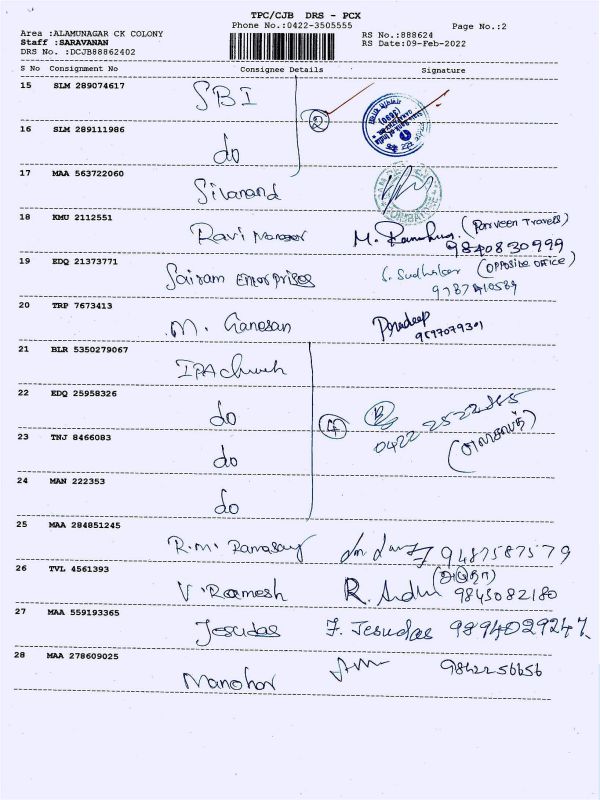 TPC/CJB DRS - PCX
Phone No.:0422-3505555
Page No.:2
Area :ALAMUNAGAR CK COLONY
Staff :SARAVANAN
DRS No. :DCJB88862402
RS No.:888624
RS Date:09-Feb-2022
S No Consignment No Consignee Details Signature
15 SLM 289074617 SBI
②
16 SLM 289111986 do
17 MAA 563722060 Sivanand
18 KMU 2112551 Ravi M. (Parveen Travels)
9840830999
19 EDQ 21373771 Sairam Enterprises S. Sudhakar (Opposite office)
20 TRP 7673413 M. Ganesan Pradeep
9597079301
21 BLR 5350279067 IPA Church
22 EDQ 25958326 do
④ 0422
23 TNJ 8466083 do
24 MAN 222353 do
25 MAA 284851245 R.M. Ramasamy 9487587579
26 TVL 4561393 V. Ramesh R. 9843082180
27 MAA 559193365 Jesudas J. Jesudas 9894029247
28 MAA 278609025 Manohar 9842256656